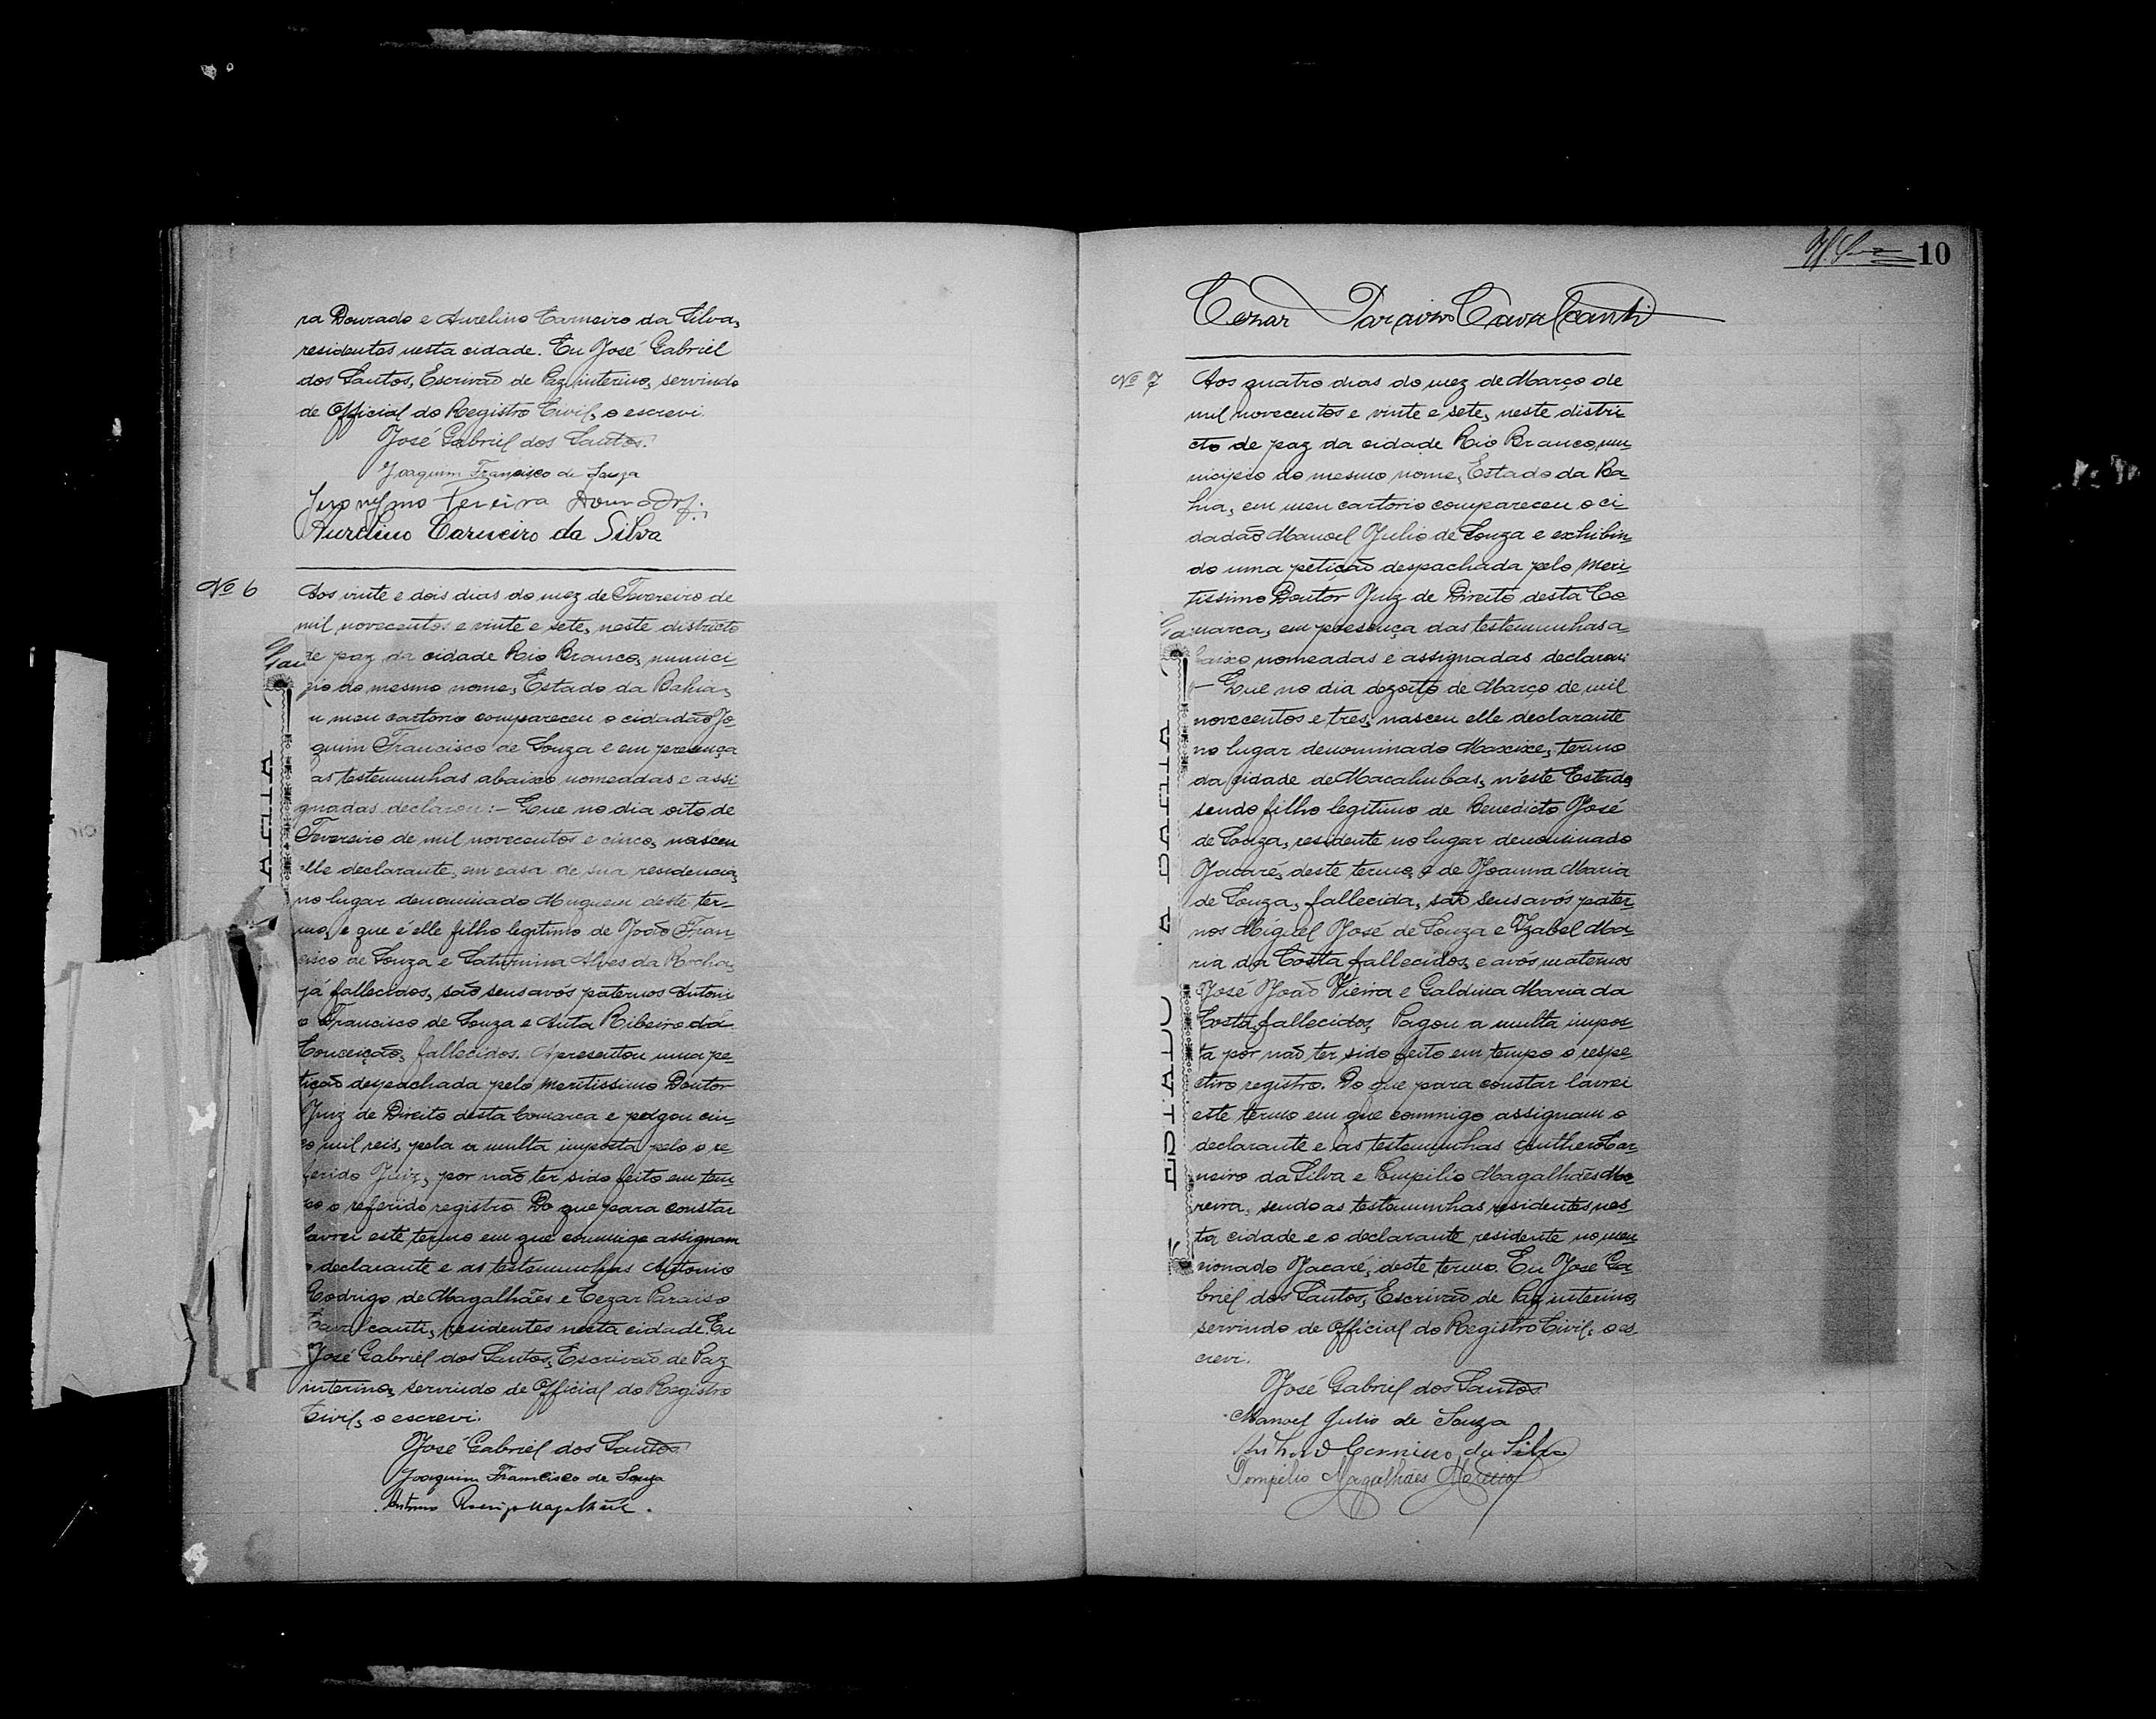 ra Dourado e Aurelino Carneiro da Silva,
residentes nesta cidade. Eu José Gabriel
dos Santos, Escrivão de Paz interino, servindo
de Official do Registro Civil, o escrevi.
José Gabriel dos Santos.
Joaquim Francisco de Souza
Jeronymo Pereira
Aurelino Carneiro da Silva
Nº 6
Aos vinte e dois dias do mez de Fevereiro de
mil novecentos e vinte e sete, neste districto
de paz da cidade Rio Branco, munici-
pio do mesmo nome, Estado da Bahia,
m meu cartorio compareceu o cidadão Jo-
quim Francisco de Souza e em presença
as testemunhas abaixo nomeadas e assi-
gnadas declarou:- Que no dia oito de
Fevereiro de mil novecentos e cinco, nasceu
elle declarante, em casa de sua residencia,
no lugar denominado Muquem deste ter-
mo, e que é elle filho legitimo de João Fran-
cisco de Souza e Saturnina Alves da Rocha,
já fallecidos, são seus avós paternos Antoni-
o Francisco de Souza e Anta Ribeiro da
Conceição, fallecidos. Apresentou uma pe-
tição despachada pelo meritissimo Doutor
Juiz de Direito desta Comarca e pagou cin-
co mil reis, pela a multa imposta pelo o re-
ferido Juiz, por não ter sido feito em tem-
po o referido registro. Do que para constar
lavrei este termo em que commigo assignam
o declarante e as testemunhas Antonio
Rodrigo de Magalhães e Cezar Paraiso
Cavalcanti, residentes nesta cidade. Eu
José Gabriel dos Santos, Escrivão de Paz
interino, servindo de Official do Registro
Civil, o escrevi.
José Gabriel dos Santos
Joaquim Francisco de Souza
Antonio Rodrigo Magalhães.
10
Cezar Paraizo Cavalcanti
Nº 7
Aos quatro dias do mez de Março de
mil novecentos e vinte e sete, neste distri-
cto de paz da cidade Rio Branco, mu-
nicipio do mesmo nome, Estado da Ba-
hia, em meu cartorio compareceu o ci-
dadão Manoel Julio de Souza e exhibin-
do uma petição despachada pelo Meri-
tissimo Doutor Juiz de Direito desta Co
marca, em presença das testemunhas a-
baixo nomeadas e assignadas declarou:
- Que no dia dezoito de Março de mil
novecentos e tres, nasceu elle declarante
no lugar denominado Maxixe, termo
da cidade de Macahubas, n'este Estado,
sendo filho legitimo de Benedicto José
de Souza, residente no lugar denominado
Jacaré, deste termo, e de Joanna Maria
de Souza, fallecida, são seus avós pater-
nos Miguel José de Souza e Izabel Ma-
ria da Costa fallecidos, e avós maternos
José João Vieira e Galdina Maria da
Costa, fallecidos. Pagou a multa impos-
ta por não ter sido feito em tempo o respe-
ctivo registro. Do que para constar lavrei
este termo em que commigo assignam o
declarante e as testemunhas Anthero Car-
neiro da Silva e Pompilio Magalhães Mo-
reira, sendo as testemunhas residentes nes-
ta cidade e o declarante residente no men-
cionado Jacaré, deste termo. Eu José Ga-
briel dos Santos, Escrivão de Paz interino,
servindo de Official do Registro Civil, o es-
crevi.
José Gabriel dos Santos
Manoel Julio de Souza
Carneiro da Silva
Pompilio Magalhães Moreira